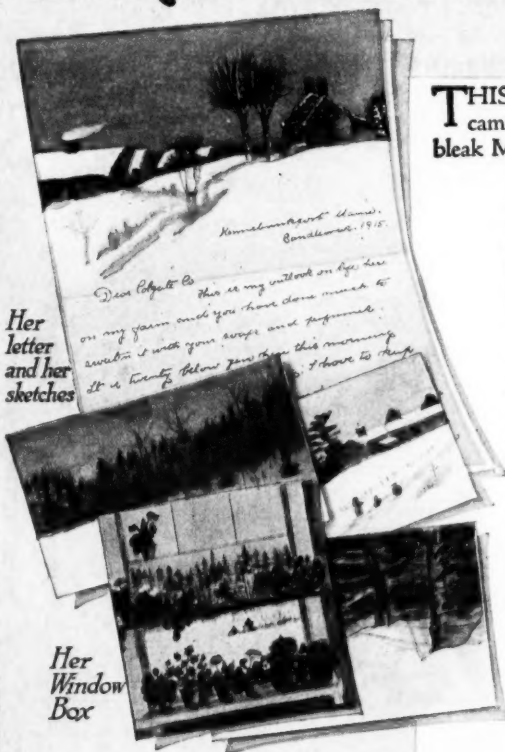 THIS
cam
bleak M
Kennebunkport Maine.
1915.
Dear Colgate Co
This is my outlook on life, here
on my farm and you have done much to
sweeten it with your soaps and perfumes.
It is twenty below zero here this morning
I have to keep
Her
letter
and her
sketches
Her
Window
Box